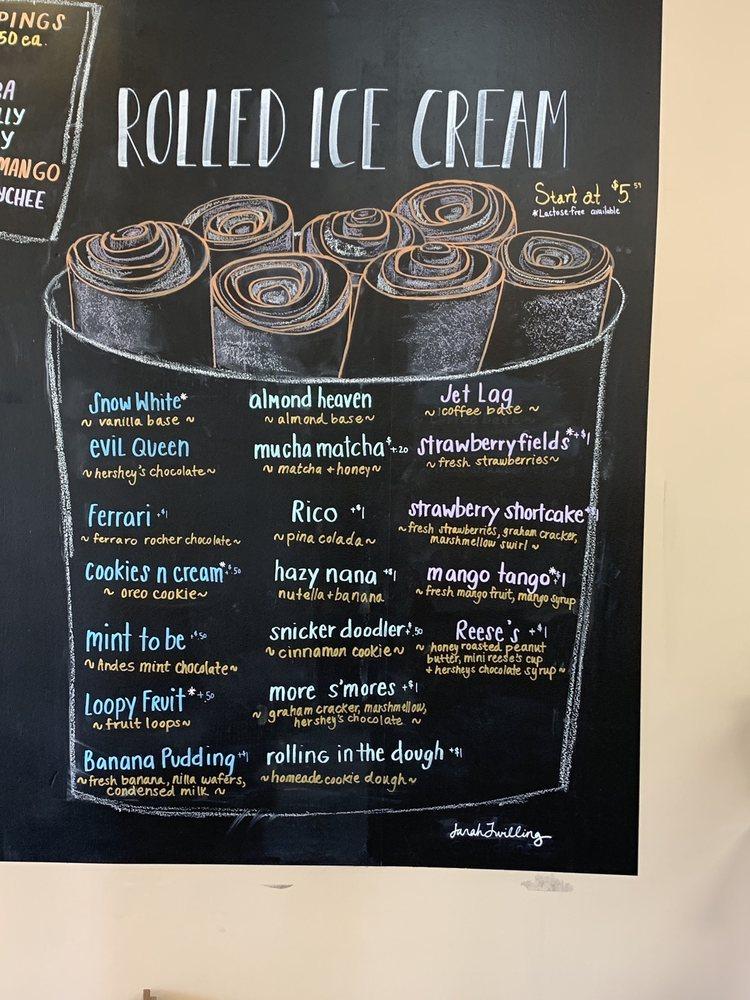 PINGS
50 ea.
RA
LLY
Y
MANGO
YCHEE
ROLLED ICE CREAM
Start at $5.59
*Lactose-free available
Snow White*
~ vanilla base ~
evil Queen
~ hershey's chocolate ~
Ferrari +$1
~ ferraro rocher chocolate ~
cookies n cream* +.50
~ oreo cookie ~
mint to be +.50
~ Andes mint chocolate ~
Loopy Fruit* +.50
~ fruit loops ~
Banana Pudding +$1
~ fresh banana, nilla wafers,
condensed milk ~
almond heaven
~ almond base ~
mucha matcha $+.20
~ matcha + honey ~
Rico +$1
~ pina colada ~
hazy nana +$1
nutella + banana
snicker doodler $.50
~ cinnamon cookie ~
more s'mores +$1
~ graham cracker, marshmellow,
hershey's chocolate ~
rolling in the dough +$1
~ homeade cookie dough ~
Jet Lag
~ coffee base ~
strawberry fields* +$1
~ fresh strawberries ~
strawberry shortcake $1
~ fresh strawberries, graham cracker,
marshmellow swirl ~
mango tango* $1
~ fresh mango fruit, mango syrup
Reese's +$1
~ honey roasted peanut
butter, mini reese's cup
+ hershey's chocolate syrup ~
Sarah Twilling